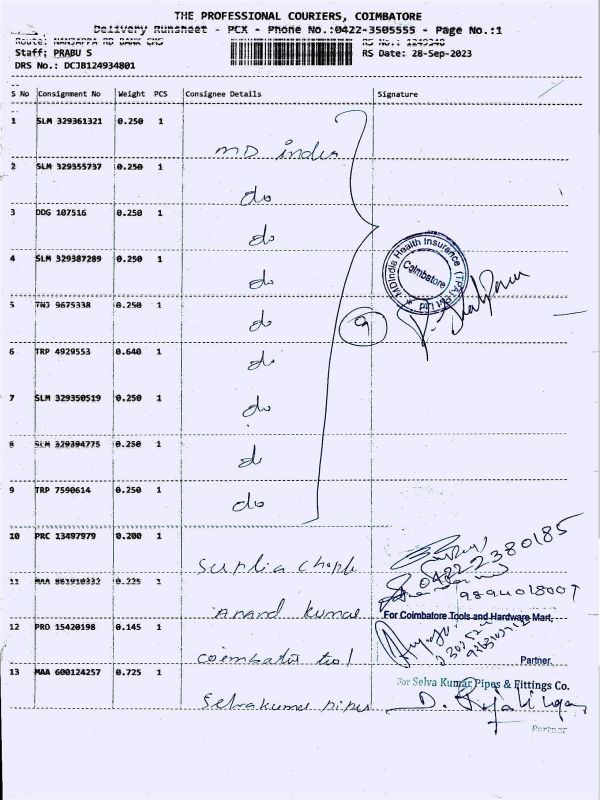 THE PROFESSIONAL COURIERS, COIMBATORE
Delivery Runsheet - PCX - Phone No.:0422-3505555 - Page No.:1
Route: NANJAPPA RD BANK CMS RS No.: 1249348
Staff: PRABU S RS Date: 28-Sep-2023
DRS No.: DCJB124934801
S No Consignment No Weight PCS Consignee Details Signature
1 SLM 329361321 0.250 1
MD india
2 SLM 329355737 0.250 1
do
3 DDG 107516 0.250 1
do
4 SLM 329387289 0.250 1
do
MDIndia Health Insurance (TPA) Pvt Ltd
Coimbatore
5 TNJ 9675338 0.250 1
do
9
6 TRP 4929553 0.640 1
do
7 SLM 329350519 0.250 1
do
8 SLM 329394775 0.250 1
do
9 TRP 7590614 0.250 1
do
10 PRC 13497979 0.200 1
04222380185
11 MAA 861910332 0.225 1
9894018007
Anand Kumar
For Coimbatore Tools and Hardware Mart,
12 PRO 15420198 0.145 1
coimbator tool
Partner.
13 MAA 600124257 0.725 1
For Selva Kumar Pipes & Fittings Co.
Selvakumar pipes
Partner